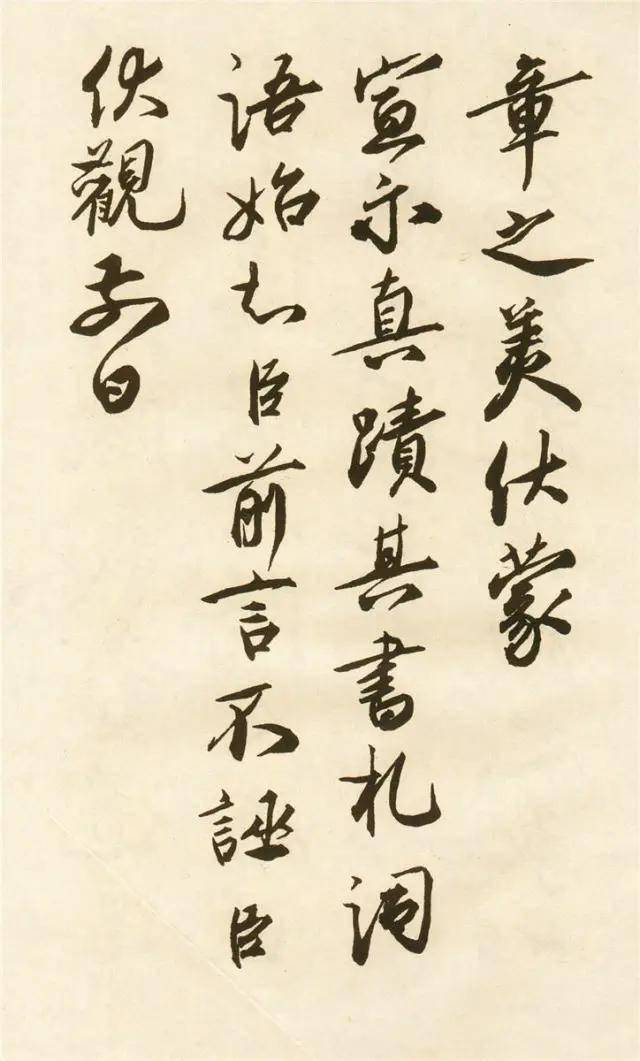 章之美伏蒙
宣示真蹟其書札词
語始知臣前言不誣臣
伏觀前日